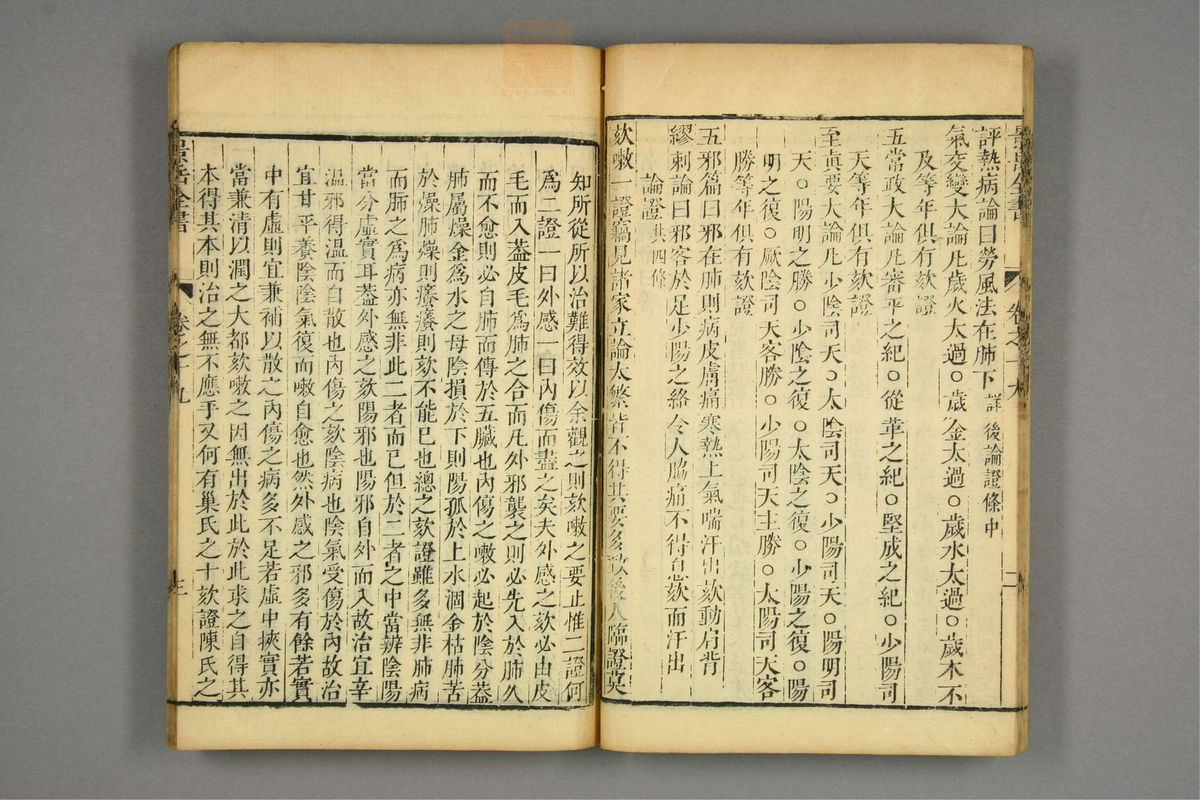 景岳全書 卷之十九 二
評熱病論曰勞風法在肺下 詳後論證條中
氣交變大論凡歲火太過○歲金太過○歲水太過○歲木不
及等年俱有欬證
五常政大論凡審平之紀○從革之紀○堅成之紀○少陽司
天等年俱有欬證
至眞要大論凡少陰司天○太陰司天○少陽司天○陽明司
天○陽明之勝○少陰之復○太陰之復○少陽之復○陽
明之復○厥陰司天客勝○少陽司天主勝○太陽司天客
勝等年俱有欬證
五邪篇曰邪在肺則病皮膚痛寒熱上氣喘汗出欬動肩背
繆刺論曰邪客於足少陽之絡令人脇痛不得息欬而汗出
論證 共四條
欬嗽一證竊見諸家立論太繁皆不得其要多致後人臨證莫
知所從所以治難得效以余觀之則欬嗽之要止惟二證何
爲二證一曰外感一曰內傷而盡之矣夫外感之欬必由皮
毛而入葢皮毛爲肺之合而凡外邪襲之則必先入於肺久
而不愈則必自肺而傳於五臟也內傷之嗽必起於陰分葢
肺屬燥金爲水之母陰損於下則陽孤於上水涸金枯肺苦
於燥肺燥則癢癢則欬不能已也總之欬證雖多無非肺病
而肺之爲病亦無非此二者而已但於二者之中當辨陰陽
當分虛實耳葢外感之欬陽邪也陽邪自外而入故治宜辛
溫邪得溫而自散也內傷之欬陰病也陰氣受傷於內故治
宜甘平養陰陰氣復而嗽自愈也然外感之邪多有餘若實
中有虛則宜兼補以散之內傷之病多不足若虛中挾實亦
當兼清以潤之大都欬嗽之因無出於此於此求之自得其
本得其本則治之無不應手又何有巢氏之十欬證陳氏之
景岳全書 卷之十九 三